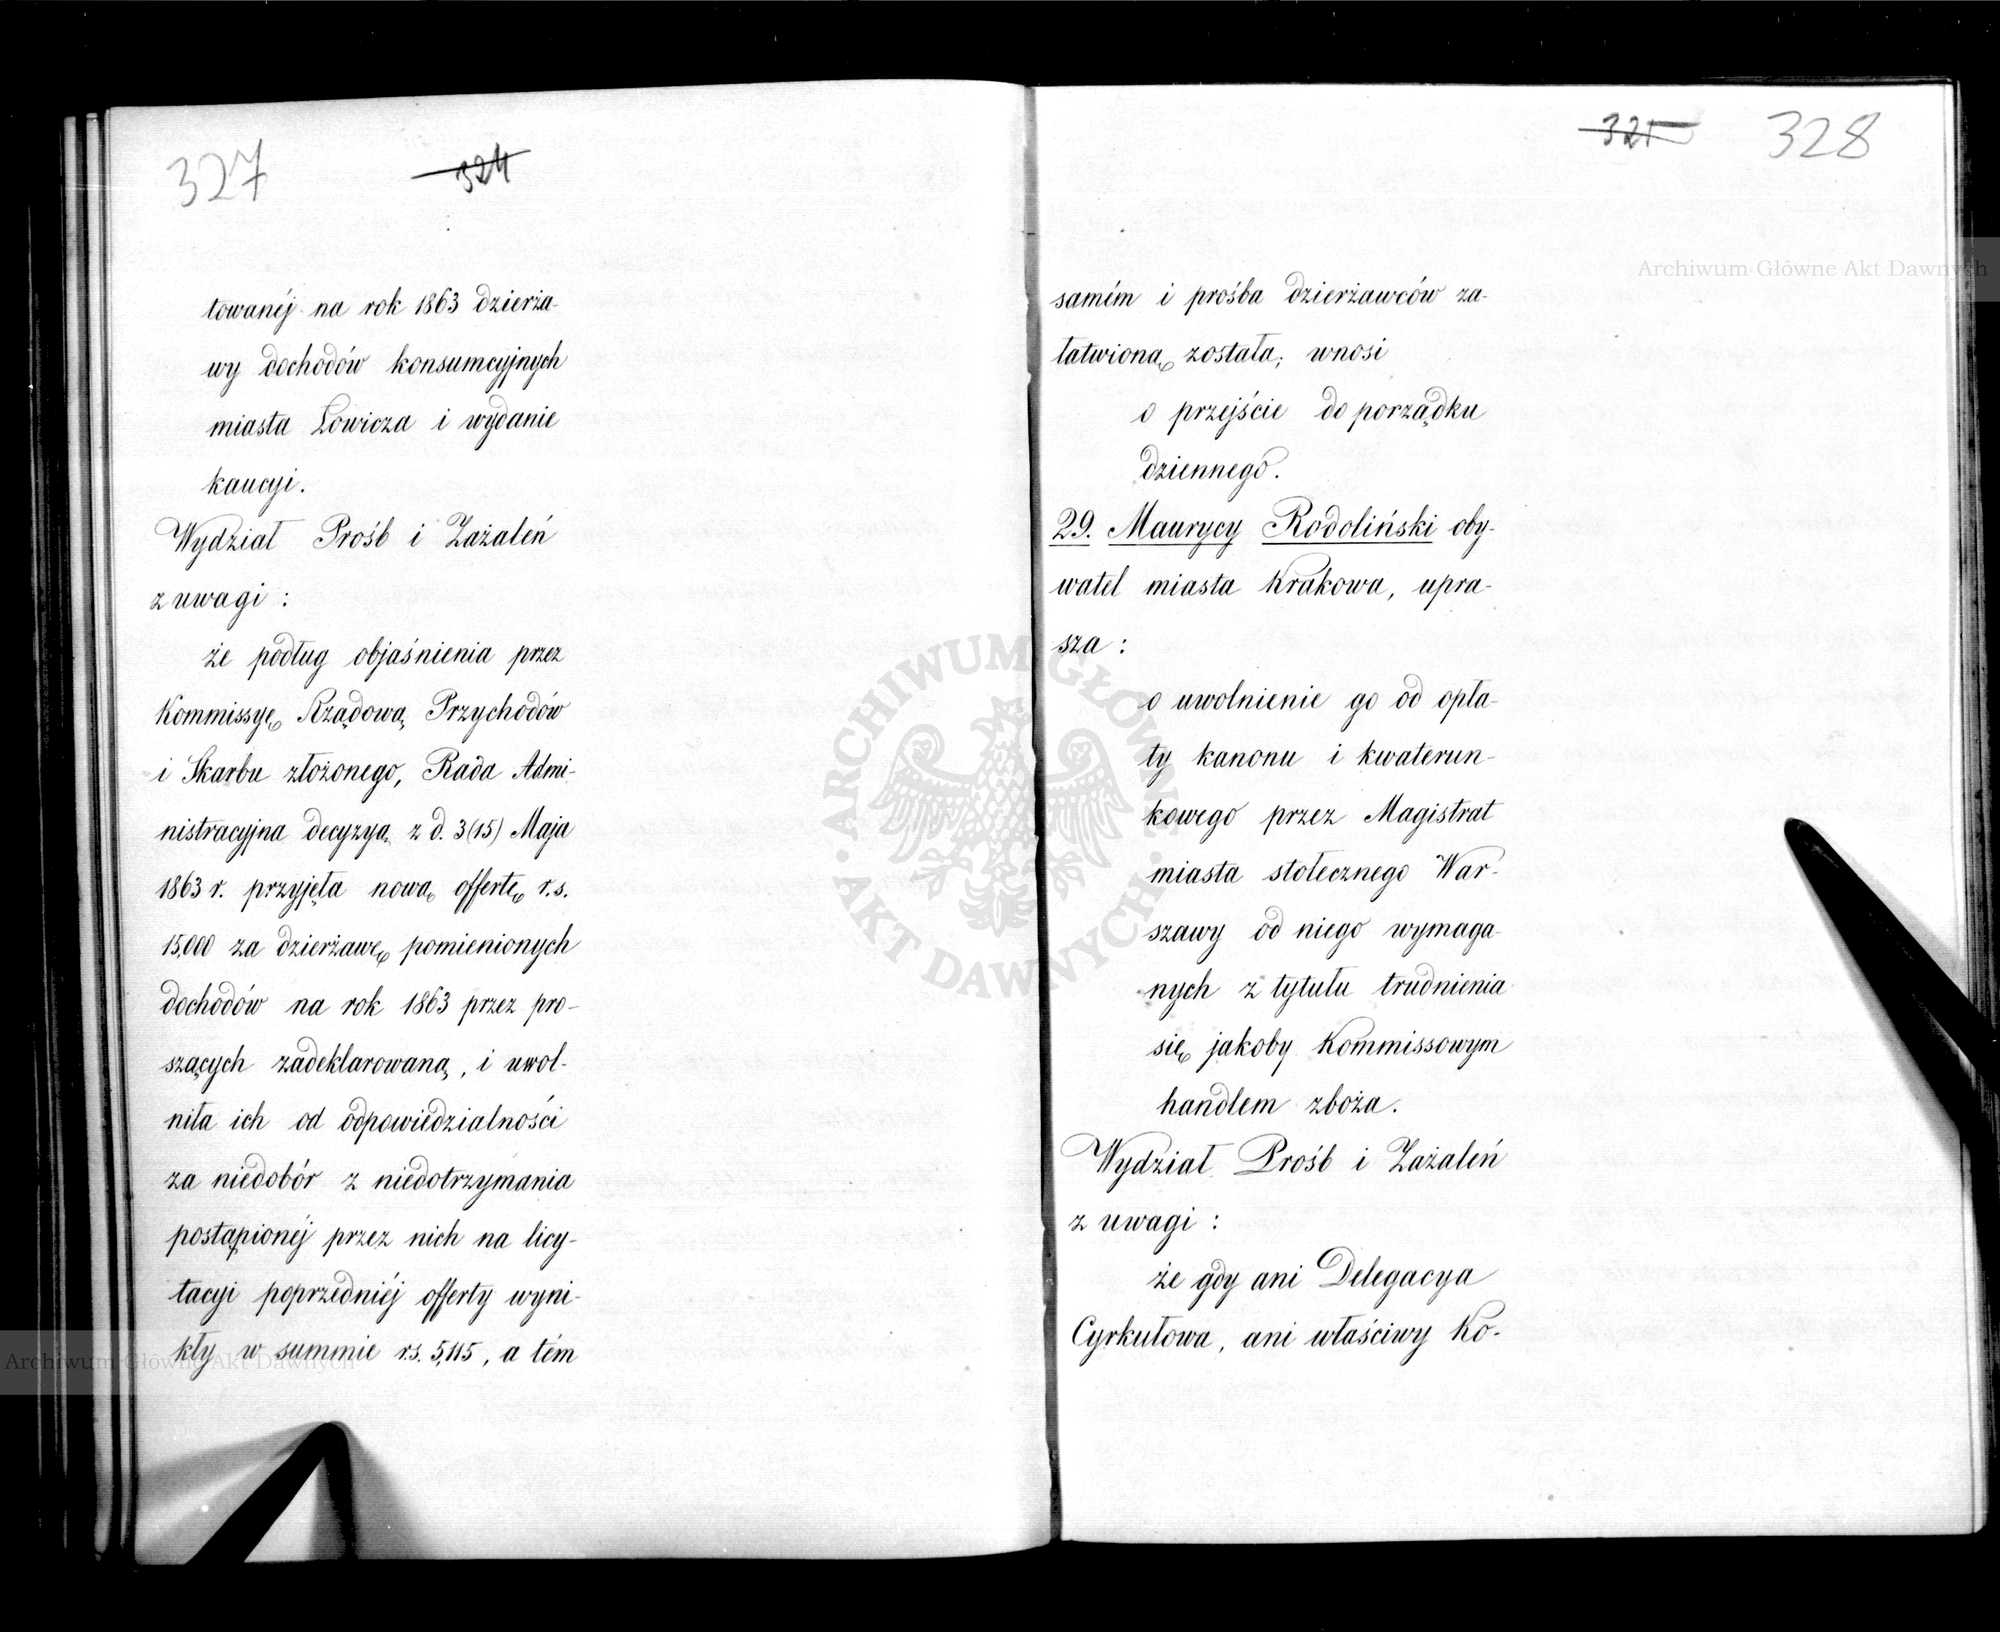 327
324
towanéj na rok 1863 dzierża-
wy dochodów konsumcyjnych
miasta Łowicza i wydanie
kaucyi.
Wydział Prośb i Zażaleń
z uwagi:
że podług objaśnienia przez
Kommissyę Rządową Przychodów
i Skarbu złożonego, Rada Admi-
nistracyjna decyzyą z d. 3(15) Maja
1863 r. przyjęła nową offertę r.s.
15,000 za dzierżawę pomienionych
dochodów na rok 1863 przez pro-
szących zadeklarowaną, i uwol-
niła ich od odpowiedzialności
za niedobór z niedotrzymania
postąpionéj przez nich na licy-
tacyi poprzedniéj offerty wyni-
kły w summie rs. 5,115, a tém
325
328
samém i prośba dzierżawców za-
łatwioną została; wnosi
o przejście do porządku
dziennego.
29. Maurycy Rodoliński oby-
watel miasta Krakowa, upra-
sza:
o uwolnienie go od opła-
ty kanonu i kwaterun-
kowego przez Magistrat
miasta stołecznego War-
szawy od niego wymaga-
nych z tytułu trudnienia
się jakoby Kommissowym
handlem zboża.
Wydział Prośb i Zażaleń
z uwagi:
że gdy ani Delegacya
Cyrkułowa, ani właściwy Ko-
Archiwum Główne Akt Dawnych
Archiwum Główne Akt Dawnych
ARCHIWUM GŁÓWNE
AKT DAWNYCH